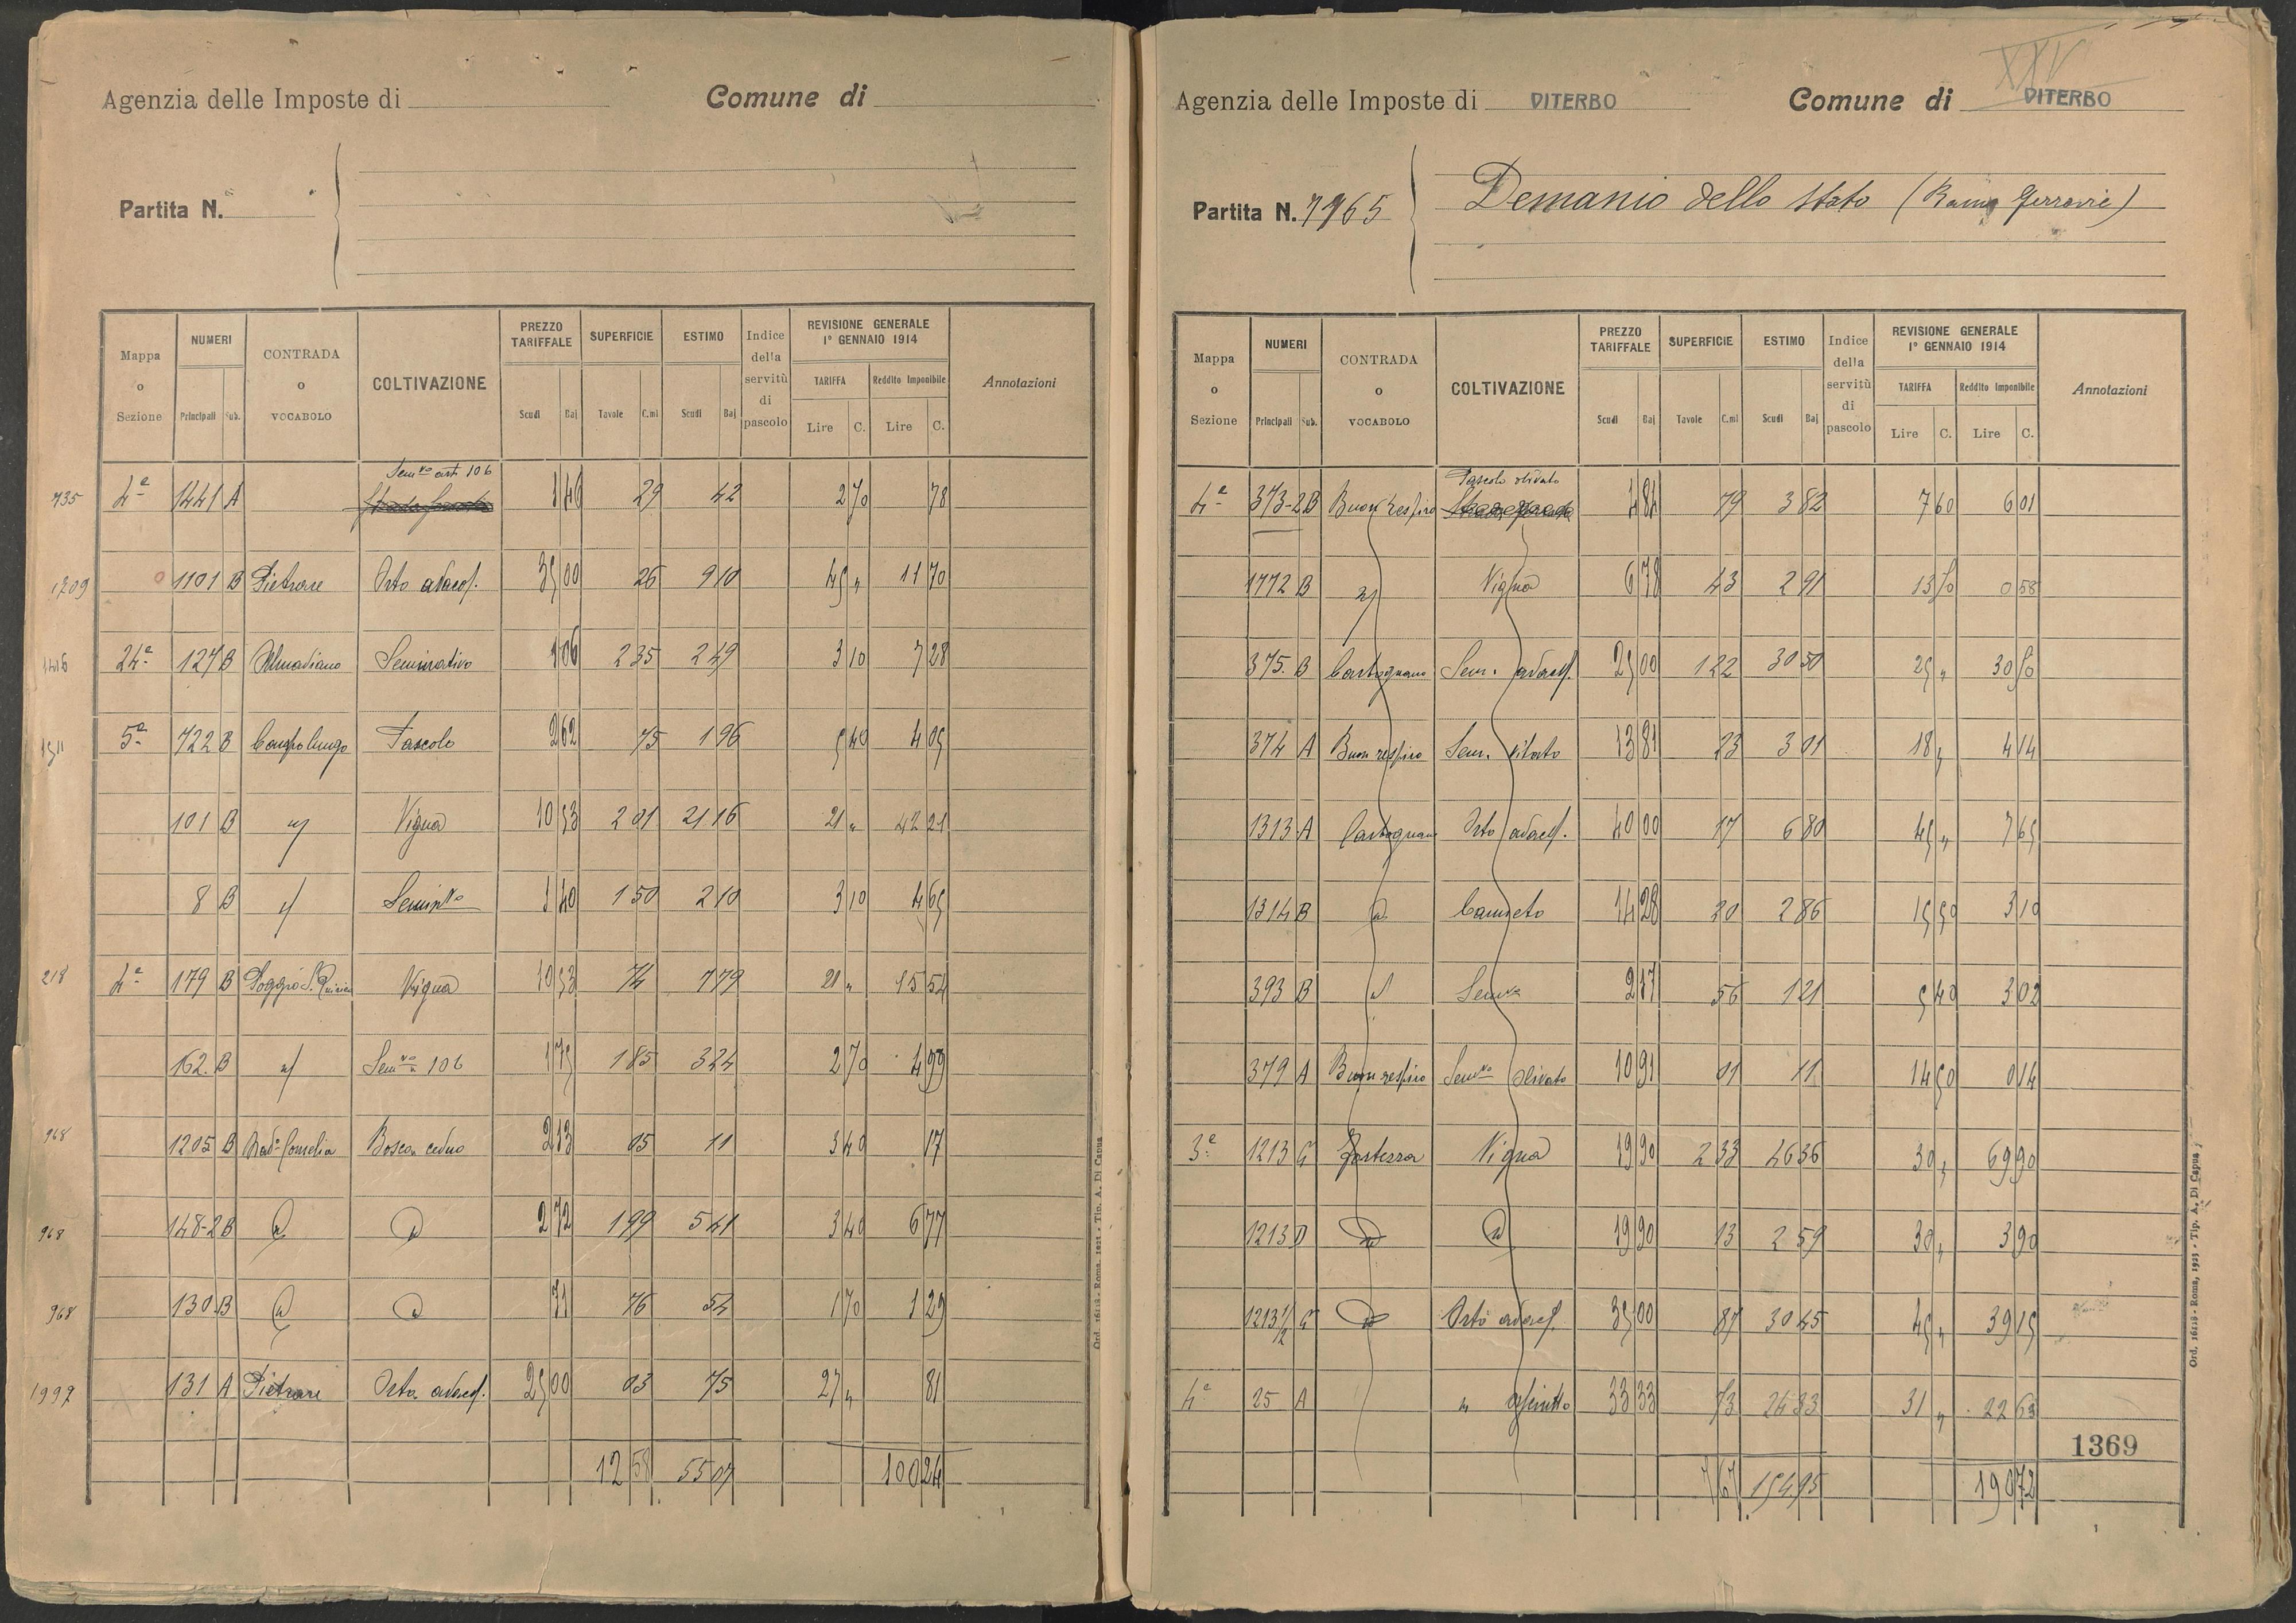 Agenzia delle Imposte di
Comune di
Partita N.
Mappa o Sezione | NUMERI Principali Sub. | CONTRADA o VOCABOLO | COLTIVAZIONE | PREZZO TARIFFALE Scudi Baj | SUPERFICIE Tavole C.mi | ESTIMO Scudi Baj | Indice della servitù di pascolo | REVISIONE GENERALE 1° GENNAIO 1914 TARIFFA Lire C. Reddito Imponibile Lire C. | Annotazioni
Sem.vo art. 106
735 4a 1441 A 1 46 29 42 2 70 78
1209 1101 B Pietrare Orto adacq. 35 00 26 9 10 45 " 11 70
24a 127 B Almadiano Seminativo 1 06 2 35 2 49 3 10 7 28
1511 5a 722 B Campolungo Pascolo 2 62 75 1 96 5 40 4 05
101 B " Vigna 10 53 2 01 21 16 21 " 42 21
8 B " Semin.vo 1 40 1 50 2 10 3 10 4 65
218 4a 179 B Poggio S. Vigna 10 53 74 7 79 21 " 15 54
162 B " Sem.vo 106 1 75 1 85 3 24 2 70 4 99
968 1205 B Bosco ceduo 2 13 05 11 3 40 17
968 148-2 B " " 2 72 1 99 5 41 3 40 6 77
968 130 B " " 71 76 54 1 70 1 29
1997 131 A Pietrare Orto adacq. 25 00 03 75 27 " 81
12 58 55 07 100 24
Ord. 16118 - Roma, 1923 - Tip. A. Di Capua
XXV
Agenzia delle Imposte di VITERBO
Comune di VITERBO
Partita N. 7965 Demanio dello Stato (Ramo Ferrovie)
Mappa o Sezione | NUMERI Principali Sub. | CONTRADA o VOCABOLO | COLTIVAZIONE | PREZZO TARIFFALE Scudi Baj | SUPERFICIE Tavole C.mi | ESTIMO Scudi Baj | Indice della servitù di pascolo | REVISIONE GENERALE 1° GENNAIO 1914 TARIFFA Lire C. Reddito Imponibile Lire C. | Annotazioni
Pascolo olivato
4a 373-2 B Buon respiro 4 84 79 3 82 7 60 6 01
1772 B " Vigna 6 78 43 2 91 13 50 0 58
375 B Sem. adacq. 25 00 1 22 30 50 25 " 30 50
374 A Buon respiro Sem. vitato 13 81 23 3 01 18 " 4 14
1313 A Orto adacq. 40 00 17 6 80 45 " 7 65
1314 B " Canneto 14 28 20 2 86 15 50 3 10
393 B " Sem.vo 2 17 56 1 21 5 40 3 02
379 A Buon respiro Sem.vo olivato 10 91 01 11 14 50 0 14
3a 1213 C Fortezza Vigna 19 90 2 33 46 36 30 " 69 90
1213 D " " 19 90 13 2 59 30 " 3 90
1213 1/2 C " Orto adacq. 35 00 87 30 45 45 " 39 15
4a 25 A " asciutto 33 33 73 24 33 31 " 22 63
7 67 154 95 190 72
1369
Ord. 16118 - Roma, 1923 - Tip. A. Di Capua